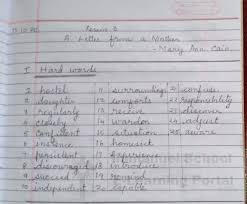 Lesson 3
A Letter from a Mother
- Mary Ann Cain
I Hard words
1 hostel 11 surrounding 21 confuse
2 daughter 12 comforts 22 responsibility
3 regularly 13 receive 23 discover
4 closely 14 warden 24 adjust
5 confident 15 situation 25 aware
6 16 homesick
7 persistent 17 experience
8 discouraged 18 introduce
9 succeed 19 remind
10 independent 20 capable